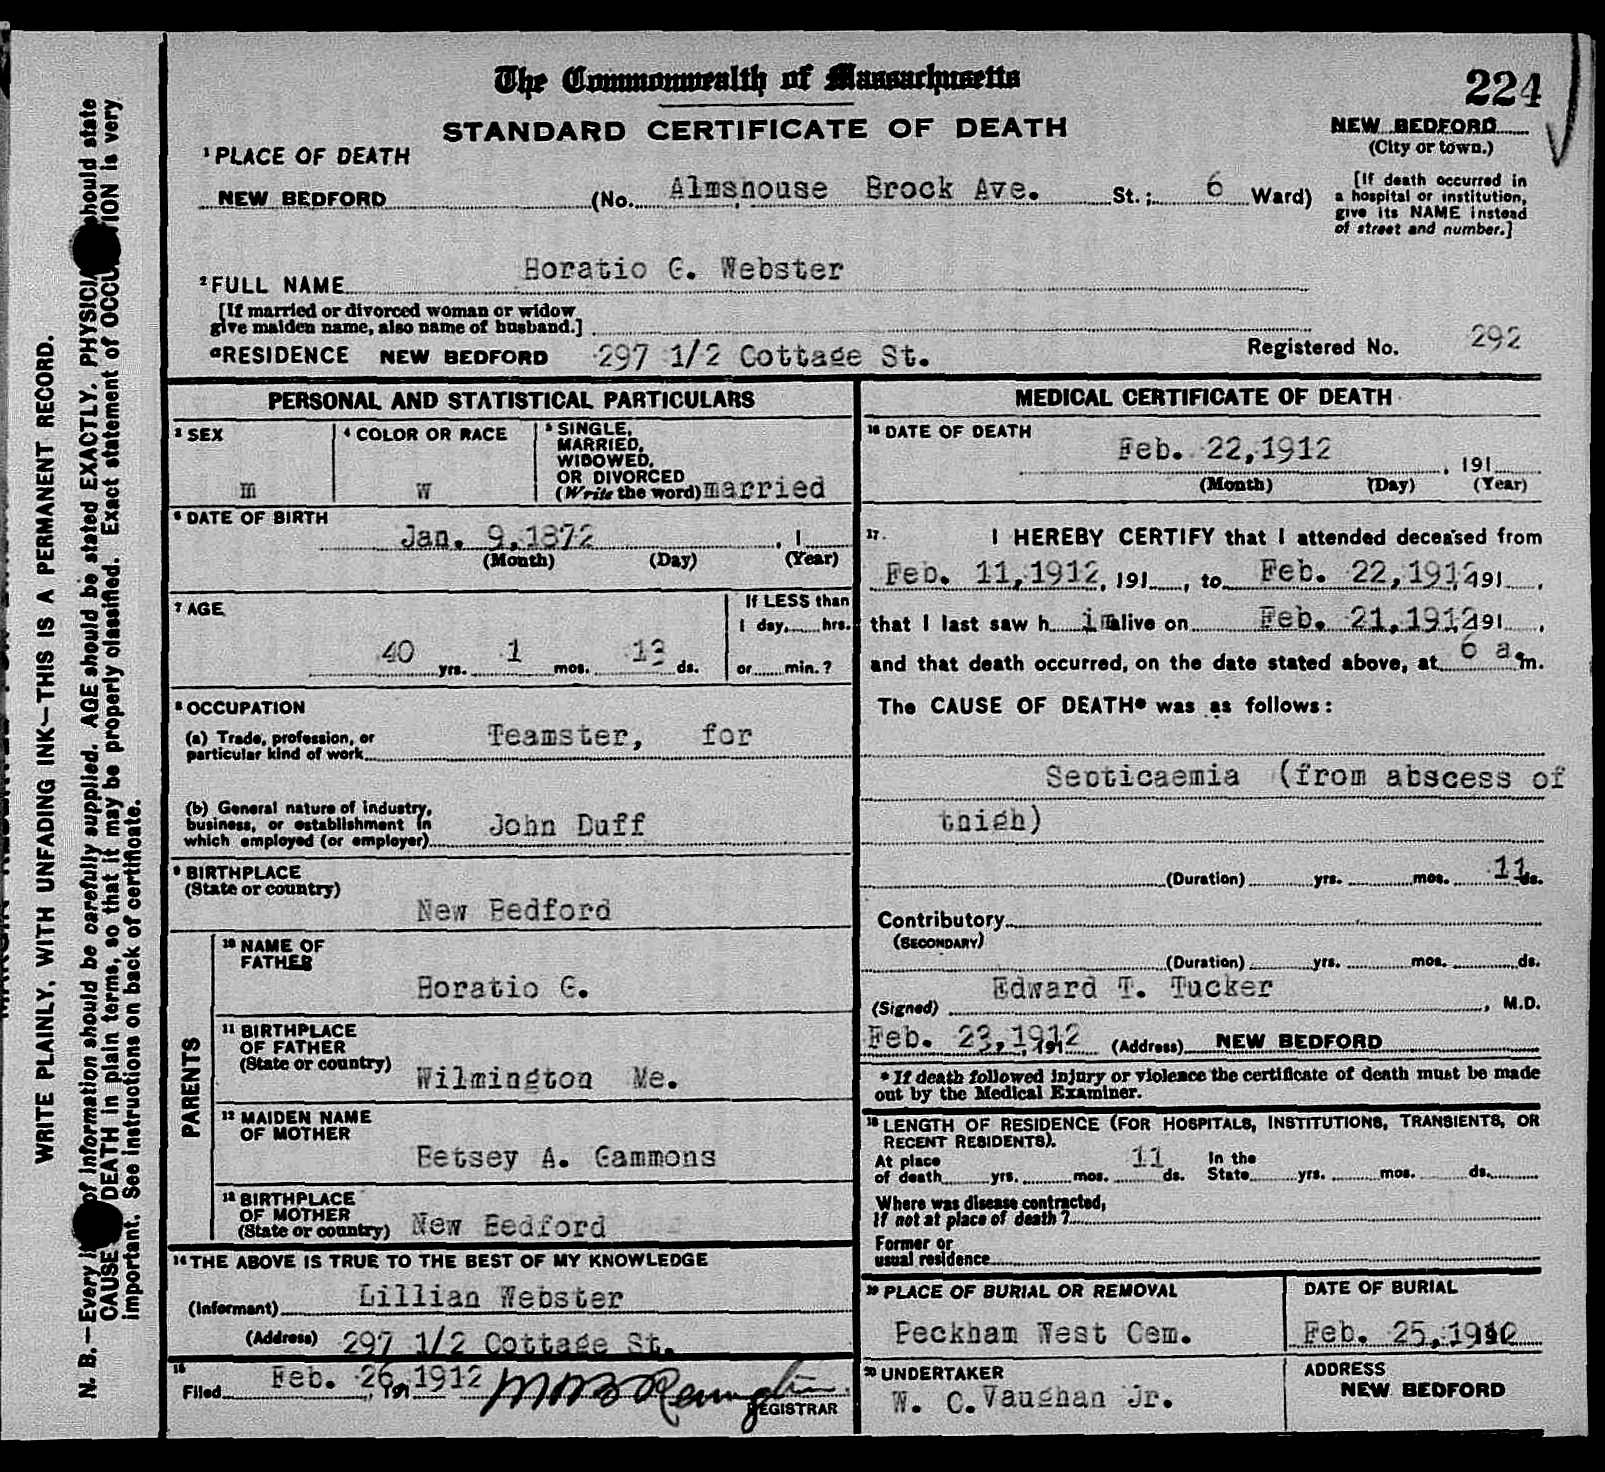 The Commonwealth of Massachusetts
224
STANDARD CERTIFICATE OF DEATH
NEW BEDFORD
(City or town.)
1 PLACE OF DEATH
NEW BEDFORD (No. Almshouse Brock Ave. St.; 6 Ward)
[If death occurred in
a hospital or institution,
give its NAME instead
of street and number.]
2 FULL NAME Horatio G. Webster
[If married or divorced woman or widow
give maiden name, also name of husband.]
a RESIDENCE NEW BEDFORD 297 1/2 Cottage St. Registered No. 292
PERSONAL AND STATISTICAL PARTICULARS
3 SEX
m
4 COLOR OR RACE
w
5 SINGLE,
MARRIED,
WIDOWED,
OR DIVORCED
(Write the word) married
6 DATE OF BIRTH
Jan. 9,1872 , 1
(Month) (Day) (Year)
7 AGE
40 yrs. 1 mos. 13 ds.
If LESS than
1 day, hrs.
or min.?
8 OCCUPATION
(a) Trade, profession, or
particular kind of work Teamster, for
(b) General nature of industry,
business, or establishment in
which employed (or employer) John Duff
9 BIRTHPLACE
(State or country)
New Bedford
PARENTS
10 NAME OF
FATHER
Horatio G.
11 BIRTHPLACE
OF FATHER
(State or country)
Wilmington Me.
12 MAIDEN NAME
OF MOTHER
Betsey A. Gammons
13 BIRTHPLACE
OF MOTHER
(State or country) New Bedford
14 THE ABOVE IS TRUE TO THE BEST OF MY KNOWLEDGE
(Informant) Lillian Webster
(Address) 297 1/2 Cottage St.
15
Filed Feb. 26, 191 1912
REGISTRAR
MEDICAL CERTIFICATE OF DEATH
16 DATE OF DEATH
Feb. 22,1912 , 191
(Month) (Day) (Year)
17. I HEREBY CERTIFY that I attended deceased from
Feb. 11,1912, 191 , to Feb. 22,1912 191 ,
that I last saw h im alive on Feb. 21,1912 191 ,
and that death occurred, on the date stated above, at 6 a. m.
The CAUSE OF DEATH* was as follows:
Septicaemia (from abscess of
thigh)
(Duration) yrs. mos. 11 ds.
Contributory
(SECONDARY)
(Duration) yrs. mos. ds.
(Signed) Edward T. Tucker , M.D.
Feb. 23,1912 191 (Address) NEW BEDFORD
* If death followed injury or violence the certificate of death must be made
out by the Medical Examiner.
18 LENGTH OF RESIDENCE (FOR HOSPITALS, INSTITUTIONS, TRANSIENTS, OR
RECENT RESIDENTS).
At place
of death yrs. mos. 11 ds.
In the
State yrs. mos. ds.
Where was disease contracted,
if not at place of death?
Former or
usual residence
19 PLACE OF BURIAL OR REMOVAL
Peckham West Cem.
DATE OF BURIAL
Feb. 25,
20 UNDERTAKER
W. C. Vaughan Jr.
ADDRESS
NEW BEDFORD
WRITE PLAINLY, WITH UNFADING INK—THIS IS A PERMANENT RECORD.
N. B.—Every of information should be carefully supplied. AGE should be stated EXACTLY. should state
CAUSE DEATH in plain terms, so that it may be properly classified. Exact statement of is very
important. See instructions on back of certificate.